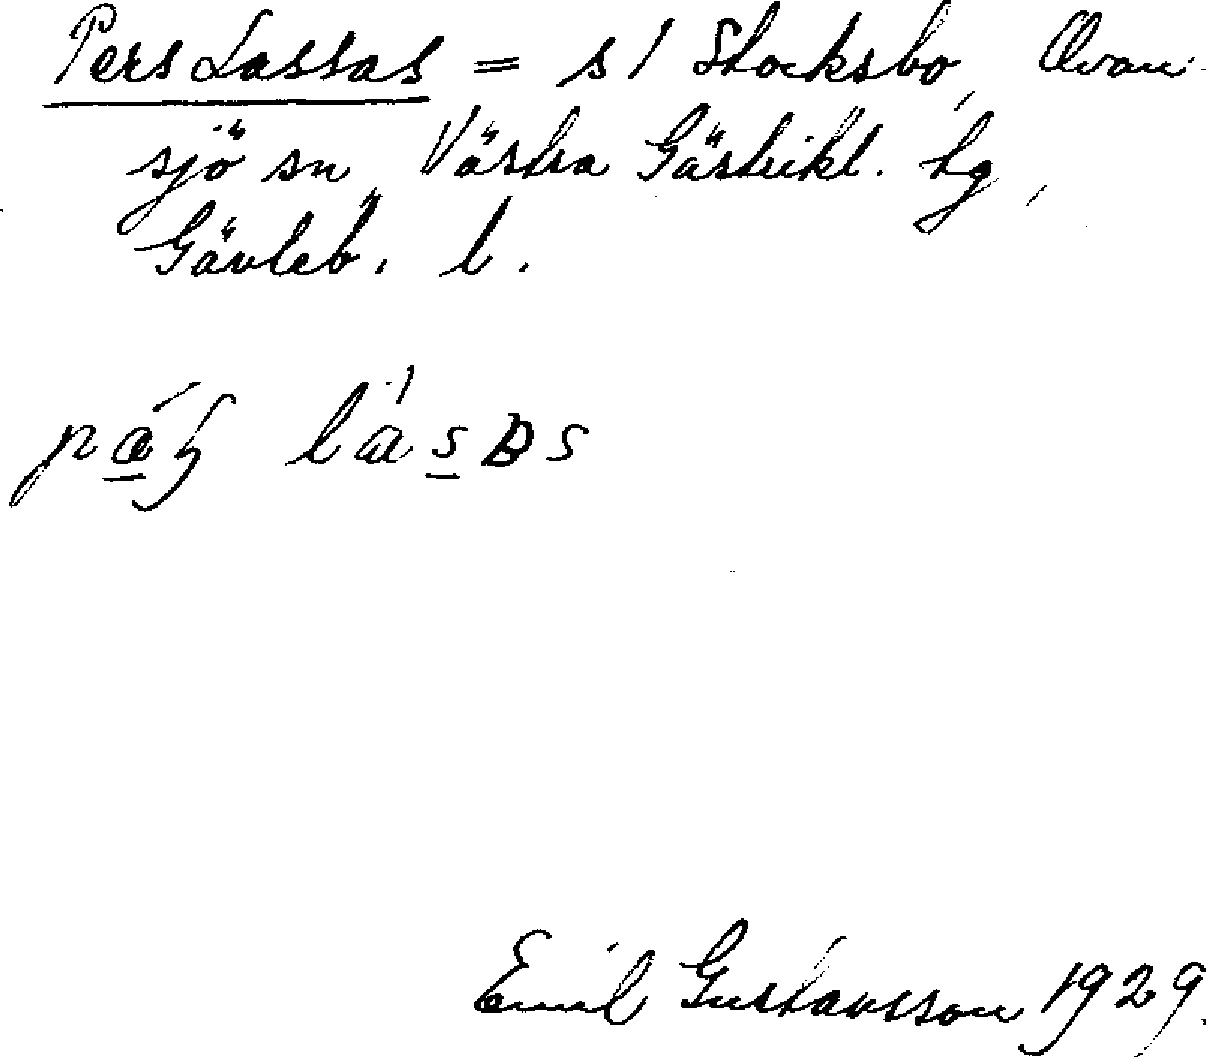 Pers Lassas = s 1 Stocksbo, Ovan-
sjö sn, Västra Gästrikl. tg,
Gävleb. l.
Emil Gustavsson 1929.